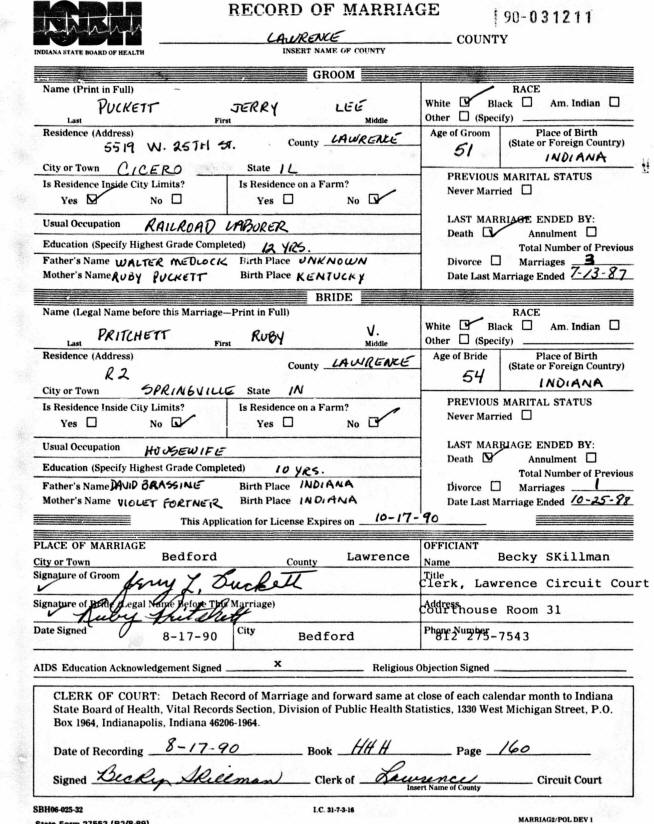 RECORD OF MARRIAGE
90-031211
ISBH
INDIANA STATE BOARD OF HEALTH
LAWRENCE COUNTY
INSERT NAME OF COUNTY
GROOM
Name (Print in Full)
PUCKETT JERRY LEE
Last First Middle
RACE
White ☑ Black ☐ Am. Indian ☐
Other ☐ (Specify)
Residence (Address)
5519 W. 25TH ST. County LAWRENCE
City or Town CICERO State IL
Age of Groom
51
Place of Birth
(State or Foreign Country)
INDIANA
Is Residence Inside City Limits?
Yes ☑ No ☐
Is Residence on a Farm?
Yes ☐ No ☑
PREVIOUS MARITAL STATUS
Never Married ☐
Usual Occupation RAILROAD LABORER
Education (Specify Highest Grade Completed) 12 YRS.
Father's Name WALTER MEDLOCK Birth Place UNKNOWN
Mother's Name RUBY PUCKETT Birth Place KENTUCKY
LAST MARRIAGE ENDED BY:
Death ☑ Annulment ☐
Total Number of Previous
Divorce ☐ Marriages 3
Date Last Marriage Ended 7-13-87
BRIDE
Name (Legal Name before this Marriage—Print in Full)
PRITCHETT RUBY V.
Last First Middle
RACE
White ☑ Black ☐ Am. Indian ☐
Other ☐ (Specify)
Residence (Address)
R2 County LAWRENCE
City or Town SPRINGVILLE State IN
Age of Bride
54
Place of Birth
(State or Foreign Country)
INDIANA
Is Residence Inside City Limits?
Yes ☐ No ☑
Is Residence on a Farm?
Yes ☐ No ☑
PREVIOUS MARITAL STATUS
Never Married ☐
Usual Occupation HOUSEWIFE
Education (Specify Highest Grade Completed) 10 YRS.
Father's Name DAVID BRASSINE Birth Place INDIANA
Mother's Name VIOLET FORTNER Birth Place INDIANA
LAST MARRIAGE ENDED BY:
Death ☑ Annulment ☐
Total Number of Previous
Divorce ☐ Marriages 1
Date Last Marriage Ended 10-25-88
This Application for License Expires on 10-17-90
PLACE OF MARRIAGE
City or Town Bedford County Lawrence
OFFICIANT
Name Becky SKillman
Signature of Groom Jerry L. Puckett
Title
Clerk, Lawrence Circuit Court
Signature of Bride (Legal Name Before This Marriage)
Ruby Pritchett
Address
Courthouse Room 31
Date Signed 8-17-90 City Bedford
Phone Number
812 275-7543
AIDS Education Acknowledgement Signed x Religious Objection Signed
CLERK OF COURT: Detach Record of Marriage and forward same at close of each calendar month to Indiana
State Board of Health, Vital Records Section, Division of Public Health Statistics, 1330 West Michigan Street, P.O.
Box 1964, Indianapolis, Indiana 46206-1964.
Date of Recording 8-17-90 Book HHH Page 160
Signed Becky Skillman Clerk of Lawrence Circuit Court
Insert Name of County
SBH06-025-32 I.C. 31-7-3-16 MARRIAG2/POL DEV 1
State Form 27552 (R2/8-89)